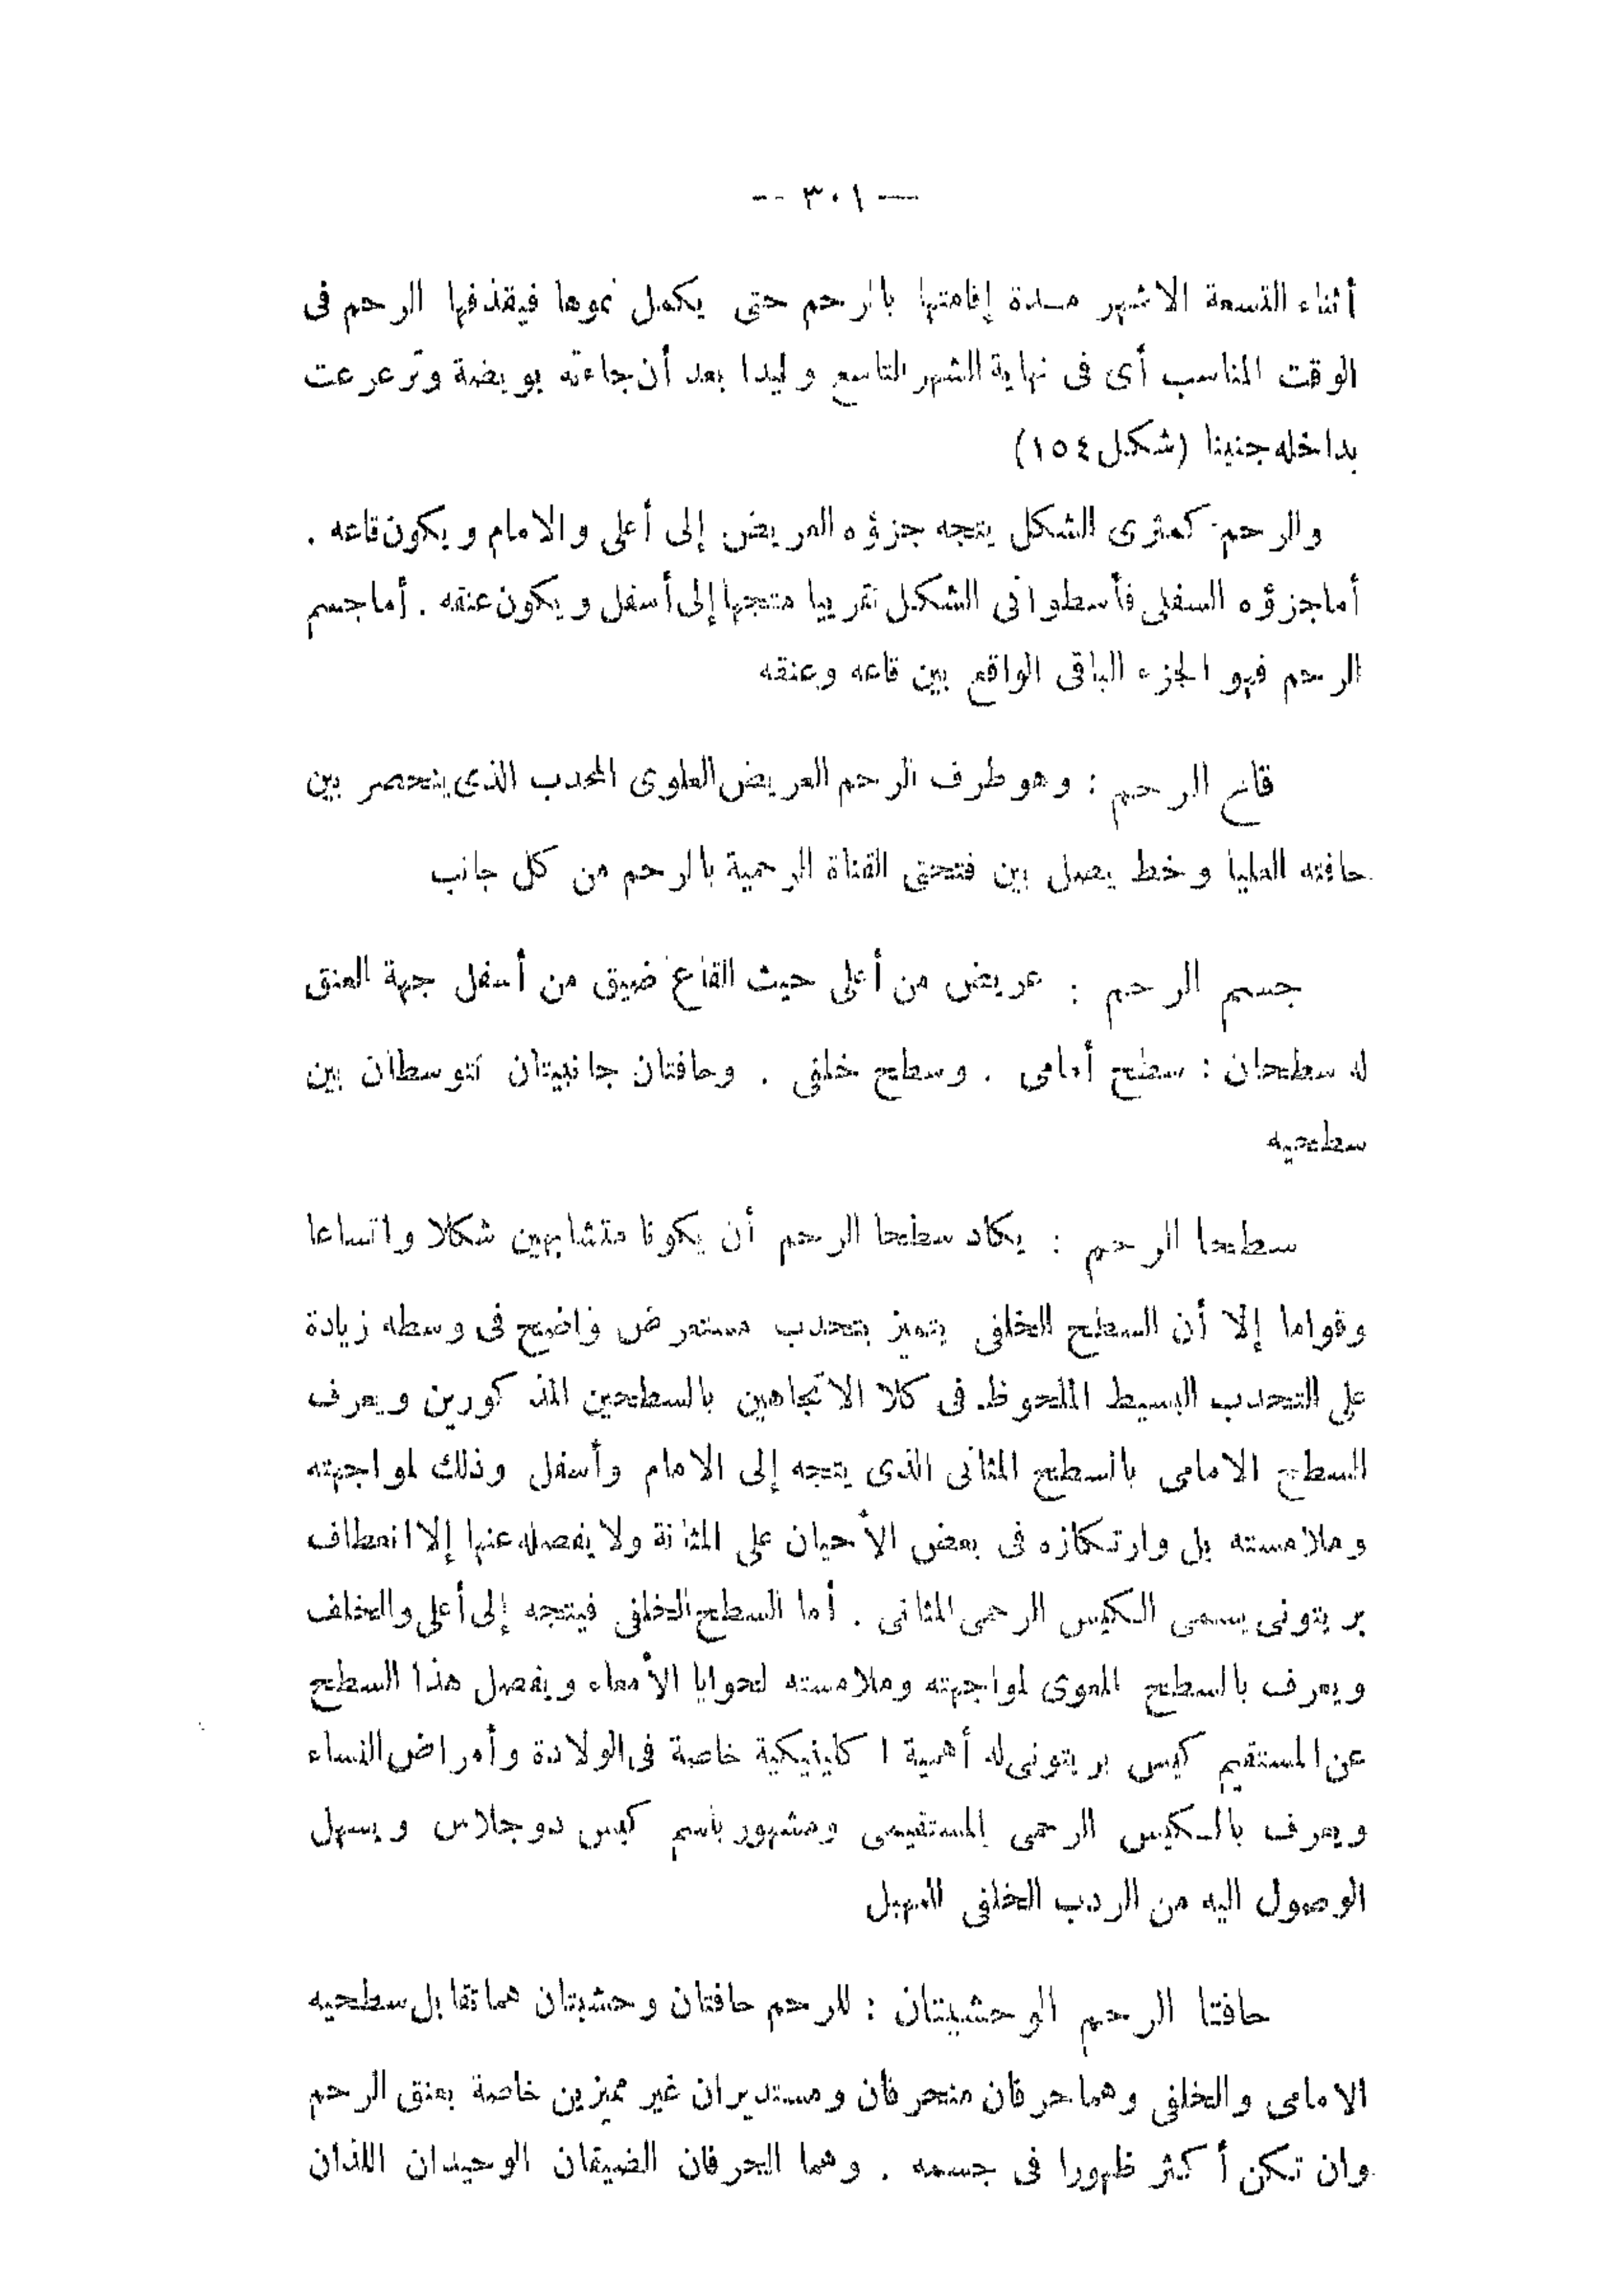 — ٣٠١ —
أثناء التسعة الاشهر مدة إقامتها بالرحم حتى يكمل نموها فيقذفها الرحم فى
الوقت المناسب أى فى نهاية الشهر التاسع وليدا بعد أن جاءته بويضة وترعرعت
بداخله جنينا (شكل ١٥٤)
والرحم كمثرى الشكل يتجه جزؤه العريض إلى أعلى والامام ويكون قاعه .
أما جزؤه السفلى فأسطوانى الشكل تقريبا متجها إلى أسفل ويكون عنقه . أما جسم
الرحم فهو الجزء الباقى الواقع بين قاعه وعنقه
قاع الرحم : وهو طرف الرحم العريض العلوى المحدب الذى ينحصر بين
حافته العليا وخط يصل بين فتحتى القناة الرحمية بالرحم من كل جانب
جسم الرحم : عريض من أعلى حيث القاع ضيق من أسفل جهة العنق
له سطحان : سطح أمامى . وسطح خلفى . وحافتان جانبيتان تتوسطان بين
سطحيه
سطحا الرحم : يكاد سطحا الرحم أن يكونا متشابهين شكلا واتساعا
وقواما إلا أن السطح الخلفى يتميز بتحدب مستعرض واضح فى وسطه زيادة
على التحدب البسيط الملحوظ فى كلا الاتجاهين بالسطحين المذكورين ويعرف
السطح الامامى بالسطح المثانى الذى يتجه إلى الامام وأسفل وذلك لمواجهته
وملامسته بل وارتكازه فى بعض الأحيان على المثانة ولا يفصله عنها إلا انعطاف
بريتونى يسمى الكيس الرحمى المثانى . أما السطح الخلفى فيتجه إلى أعلى والخلف
ويعرف بالسطح المعوى لمواجهته وملامسته لحوايا الأمعاء ويفصل هذا السطح
عن المستقيم كيس بريتونى له أهمية ا كلينيكية خاصة فى الولادة وأمراض النساء
ويعرف بالكيس الرحمى المستقيمى ومشهور باسم كيس دوجلاس ويسهل
الوصول اليه من الردب الخلفى للمهبل
حافتا الرحم الوحشيتان : للرحم حافتان وحشيتان هما تقابل سطحيه
الامامى والخلفى وهما حرفان منحرفان ومستديران غير مميزين خاصة بعنق الرحم
وان تكن أكثر ظهورا فى جسمه . وهما الحرفان الضيقان الوحيدان اللذان